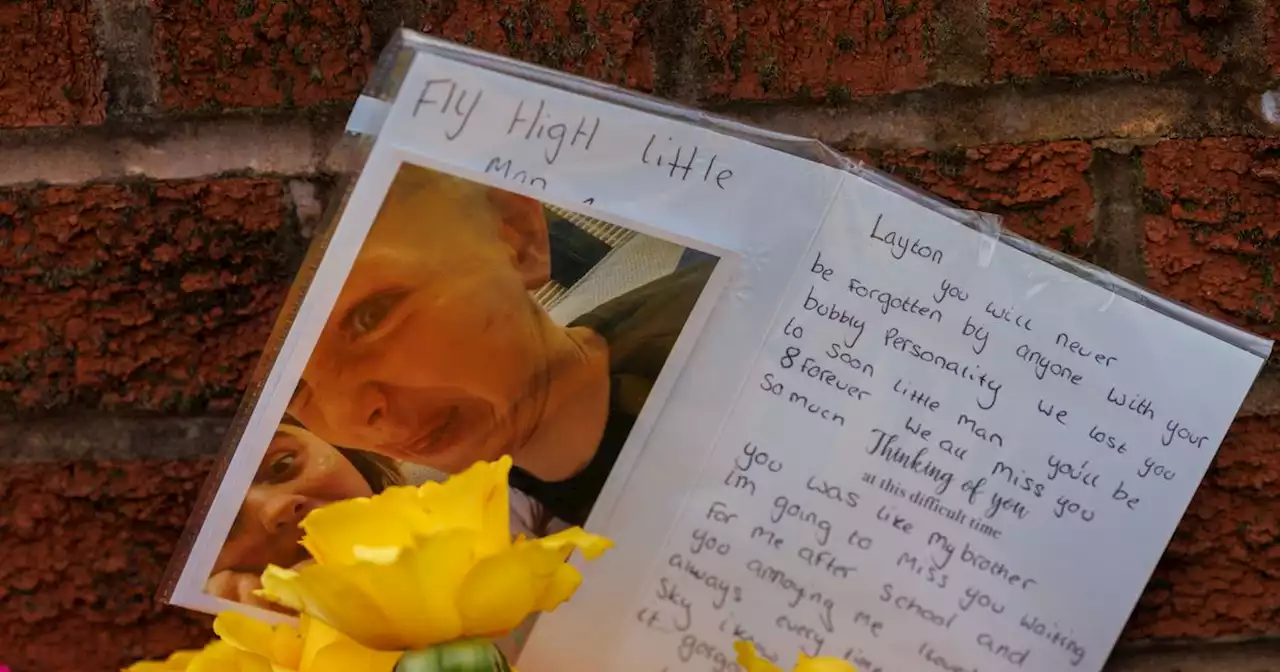 Fly High little
Man
Layton
you will never
be forgotten by anyone with your
bubbly Personality we lost you
to soon little man you'll be
8 forever we all miss you
so much
Thinking of you
at this difficult time
you was like my brother
im going to miss you waiting
for me after school and
you annoying me
always every time
Sky i know
it